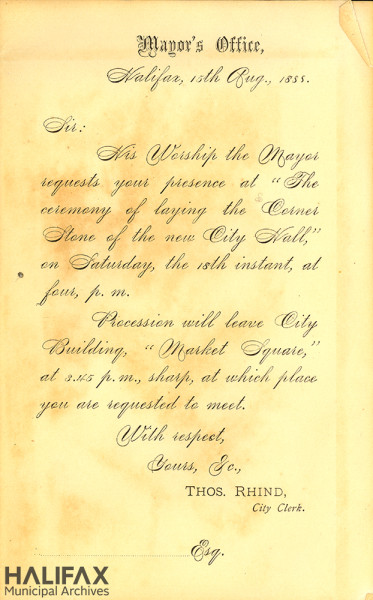 Mayor's Office,
Halifax, 15th Aug., 1888.
Sir:
His Worship the Mayor
requests your presence at "The
ceremony of laying the Corner
Stone of the new City Hall,"
on Saturday, the 18th instant, at
four, p. m.
Procession will leave City
Building, "Market Square,"
at 3.45 p. m., sharp, at which place
you are requested to meet.
With respect,
Yours, &c.,
THOS. RHIND,
City Clerk.
Esq.
HALIFAX
Municipal Archives